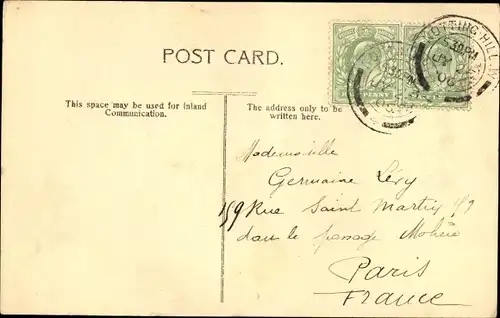 POST CARD.
This space may be used for inland
Communication.
The address only to be
written here.
NOTTING-HILL
5.30PM
Mademoiselle
Germaine Lévy
159 Rue Saint Martin
dans le passage Molière
Paris
France